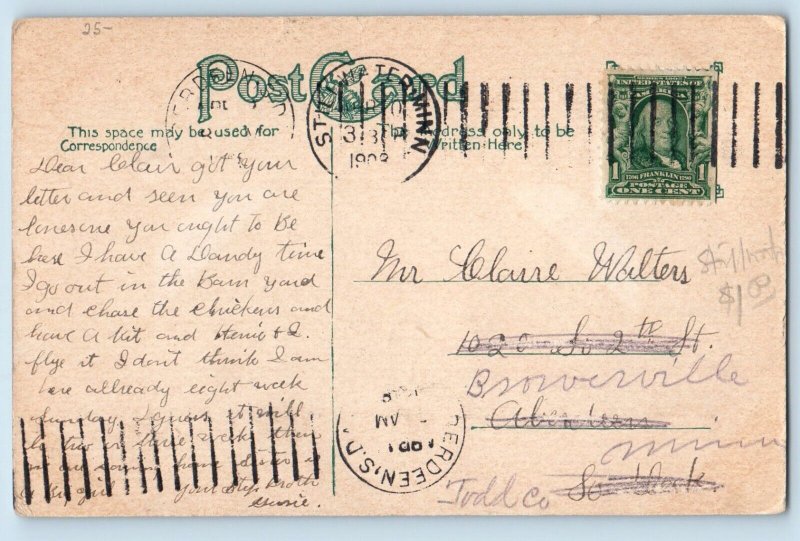 25-
Post Card
This space may be used for
Correspondence
The Address only to be
Written Here
STILLWATER, MINN
1908
SERIES 1902
UNITED STATES OF
AMERICA
1 1706 FRANKLIN 1790 1
POSTAGE
ONE CENT
Dear Clair got your
letter and seen you are
lonesome you ought to Be
here I have A Dandy time
I go out in the Barn yard
and chase the chickens and
have A kit and Henie & I.
flye it I don't think I am
here allready eight week
Sunday I guess it will
be two or three week then
Mr Claire Walters
1020 So 2th St.
Aberdeen
So Dak
Browerville
Minn
Todd Co
ABERDEEN, S.D.
AM
$1.00